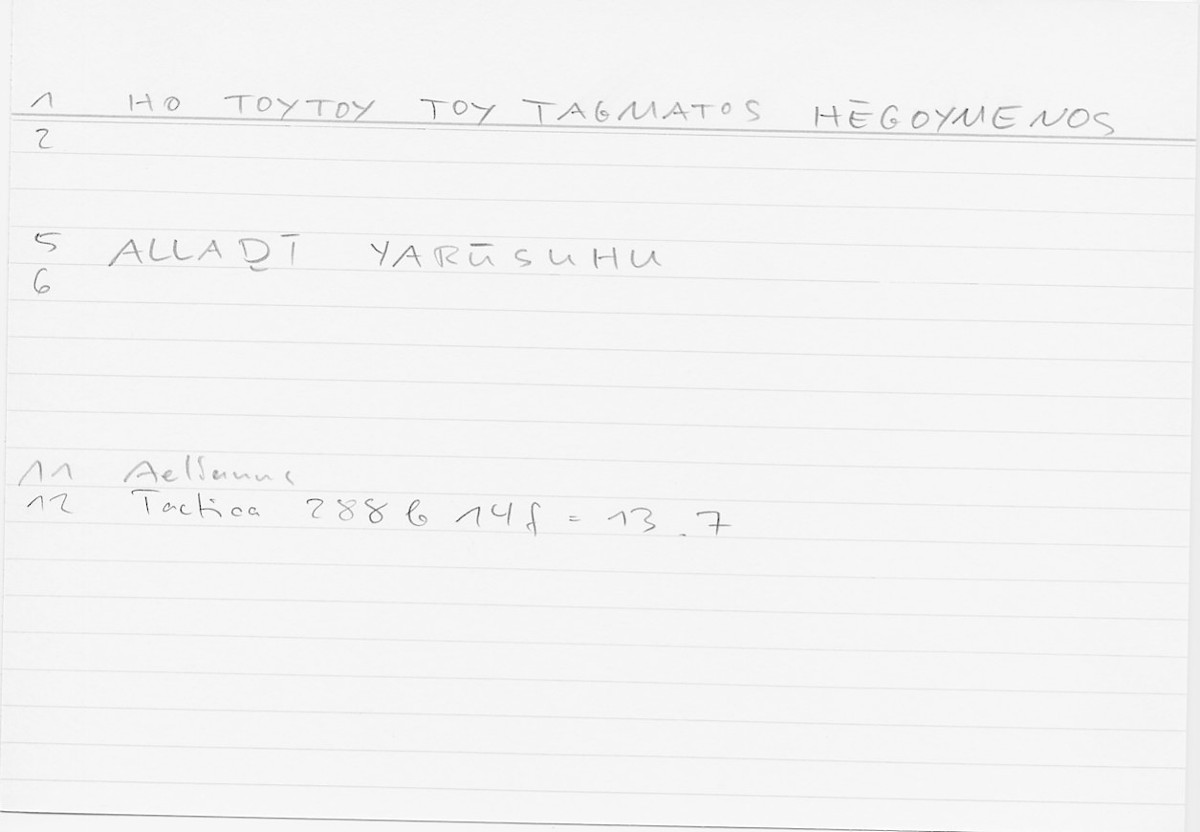 1 HO TOYTOY TOY TAGMATOS HĒGOYMENOS
2
5 ALLAḎĪ YARŪSUHU
6
11 Aelianus
12 Tactica 288 b 14f = 13.7